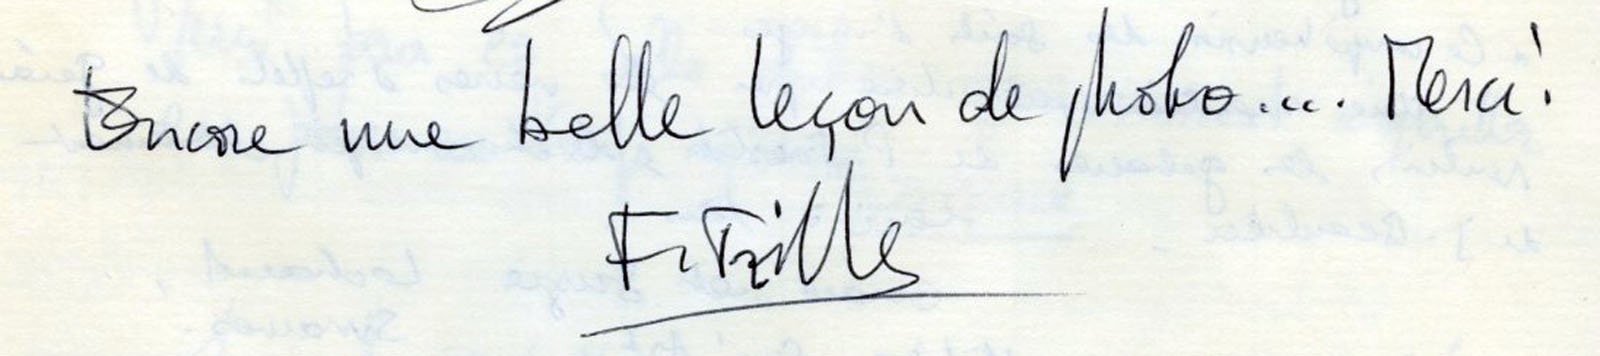 Encore une belle leçon de photo.... Merci!